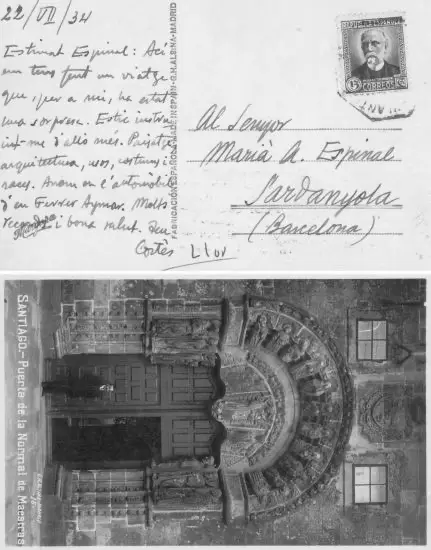 22/VII/34
Estimat Espinal: Ací
em tens fent un viatge
que, per a mi, ha estat
una sorpresa. Estic instruint-me
d'allò més. Paisatge
arquitectura, usos, costums i
races. Anem en l'automòbil
d'en Ferrer Aymar. Molts
records i bona salut. Seu
Cortès Llor
FABRICACIÓN ESPAÑOLA-MADE IN SPAIN-G.H. ALSINA-MADRID
REPUBLICA ESPAÑOLA
15 CORREOS
Al Senyor
Marià A. Espinal
Sardanyola
(Barcelona)
SANTIAGO.-Puerta de la Normal de Maestras